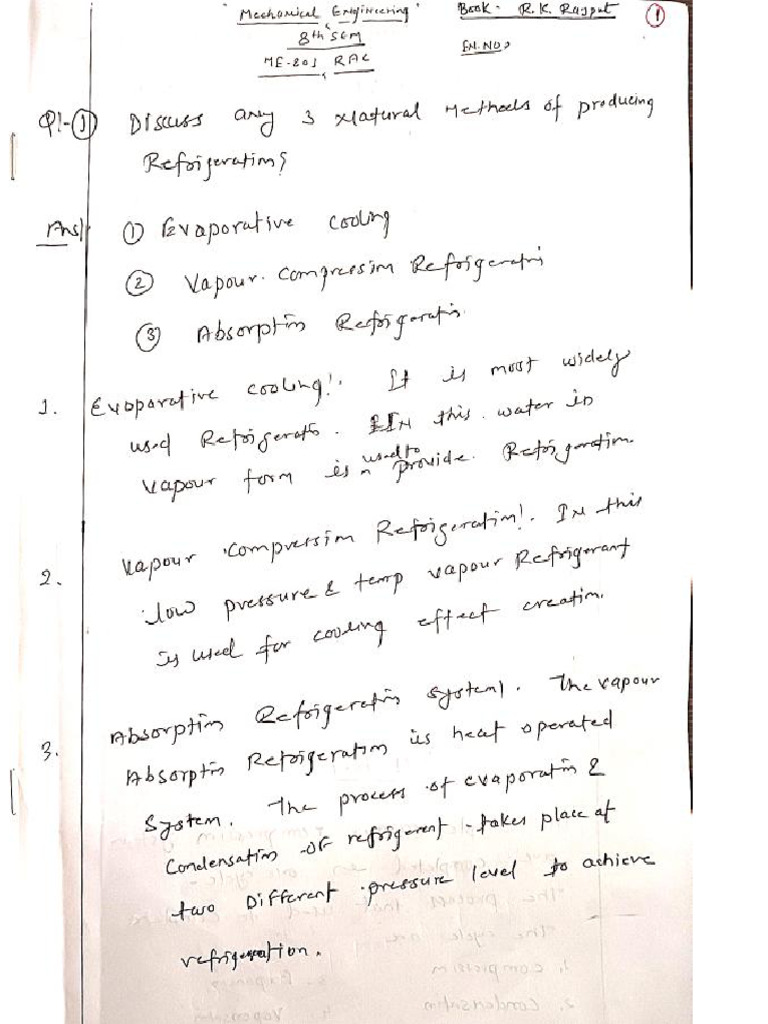 Mechanical Engineering
Book- R.K. Rajput
1
8th SEM
ME-801, RAC
EN.NO>
Q1-(1) Discuss any 3 Natural Metheds of producing
Refrigeration?
Ans/
(1) Evaporative cooling
(2) Vapour. Compression Refrigeration
(3) Absorption Refrigeration
1. Evaporative cooling!. It is most widely
used Refrigeratn. IN this water in
vapour form is used to provide Refrigeration.
2. Vapour Compression Refrigeration!. IN this
low pressure & temp vapour Refrigerant
is used for cooling effect creation.
3. Absorption Refrigeration System!. The vapour
Absorption Refrigeration is heat operated
System. The process of evaporation &
Condensation OF refrigerent takes place at
two Different pressure level to achieve
refrigeration.